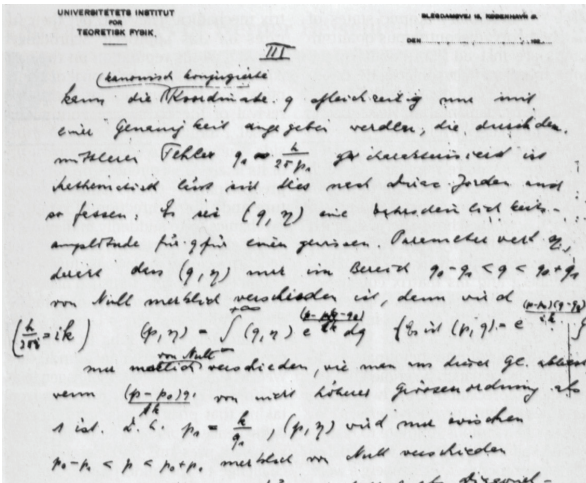 UNIVERSITETETS INSTITUT
FOR
TEORETISK FYSIK
BLEGDAMSVEJ, KØBENHAVN Ø.
DEN
III
(kanonisch konjugierte
kann die Koordinate q gleichzeitig nur mit
einer Genauigkeit angegeben werden, die durch den
mittleren Fehler q₁ = h/2πp₁ charakterisiert ist
Mathematisch lässt sich dies nach Dirac-Jordan
so fassen: Es sei (q, η) eine Wahrscheinlichkeits-
amplitude für q für einen gewissen Parameterwert
derart dass (q, η) nur im Bereich q₀-q₁ < q < q₀+q₁
von Null merklich verschieden ist, dann wird
(h/2πi = ik) (p, η) = ∫ (q, η) e dq {Es ist (p, q) = e
von Null
nur merklich verschieden, wie man aus dieser Gl. abliest
wenn (p-p₀)q₁/ik von nicht höherer Grössenordnung als
1 ist. D.h. p₁ = k/q₁, (p, η) wird nur zwischen
p₀-p₁ < p < p₀+p₁ merklich von Null verschieden